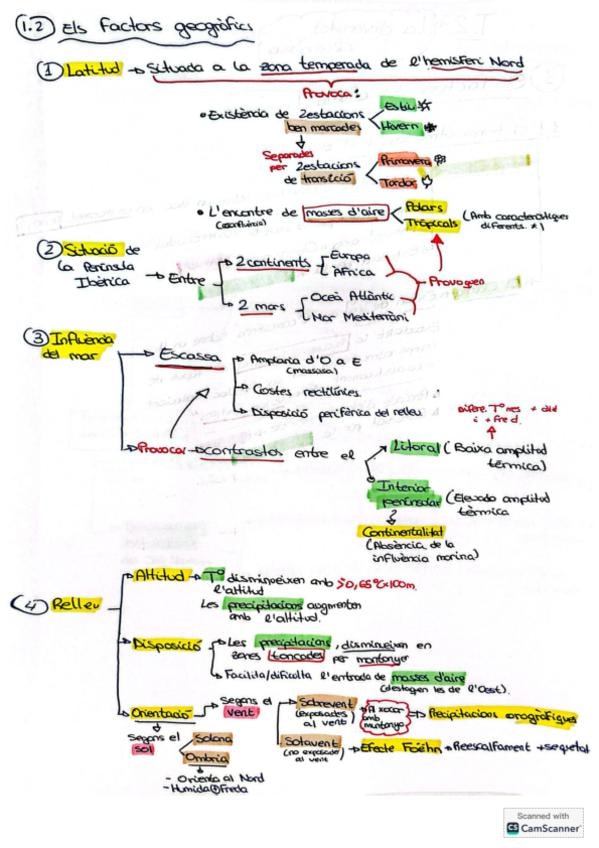 1.2 Els factors geogràfics
1 Latitud → Situada a la zona temperada de l'hemisferi Nord
Provoca:
• Existència de 2 estacions ben marcades
Estiu
Hivern
Separades per 2 estacions de transició
Primavera
Tardor
• L'encontre de masses d'aire
(confluència)
Polars
Tropicals
(Amb característiques diferents. *)
2 Situació de la Península Ibèrica → Entre
2 continents
Europa
Àfrica
2 mars
Oceà Atlàntic
Mar Mediterrani
Provoquen
3 Influència del mar
Escassa
Amplaria d'O a E
(massissa)
Costes rectilínies
Disposició perifèrica del relleu
Provocar → contrastos entre el
Difere. Tº mes + càlid i + fred
Litoral (Baixa amplitud tèrmica)
Interior peninsular (Elevada amplitud tèrmica
Continentalitat
(Absència de la influència marina)
4 Relleu
Altitud → Tº disminueixen amb l'altitud
0,65ºC x 100m.
Les precipitacions augmenten amb l'altitud.
Disposició → Les precipitacions, disminueixen en zones tancades per muntanyes
Facilita/dificulta l'entrada de masses d'aire
(destaquen les de l'Oest).
Orientació → Segons el vent
Sobrevent
(exposades al vent)
Al xocar amb muntanya
Precipitacions orogràfiques
Sotavent
(no exposades al vent)
Efecte Foëhn → Reescalfament + sequetat
Segons el sol
Solana
Ombria
- Orienta al Nord
- Humida Freda
Scanned with
CS CamScanner